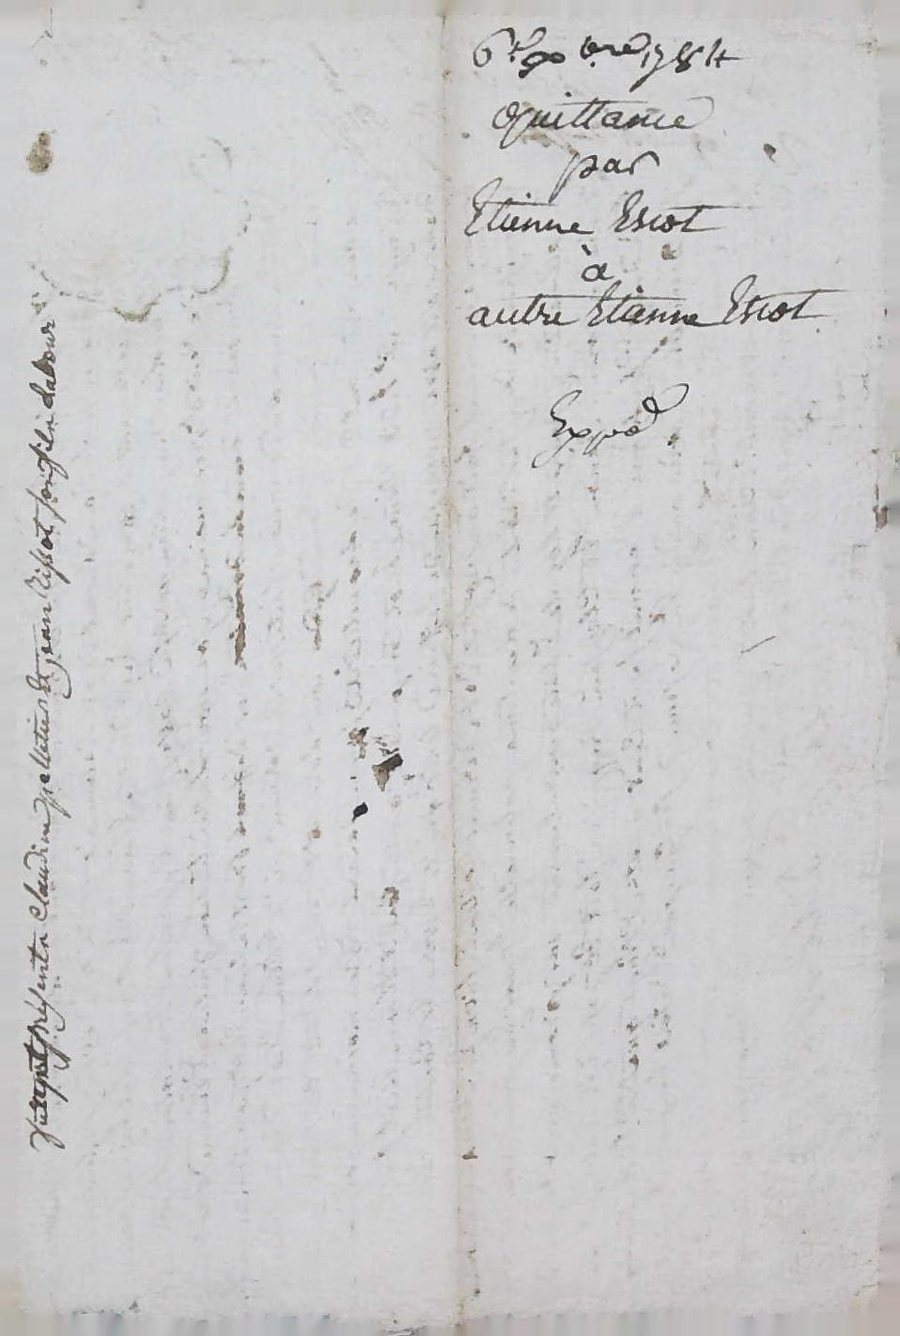 6e xbre 1784
Quittance
par
Etienne Escot
à
autre Etienne Escot
Expéd
présente Claudine pelletier Et jean Tissot son fils